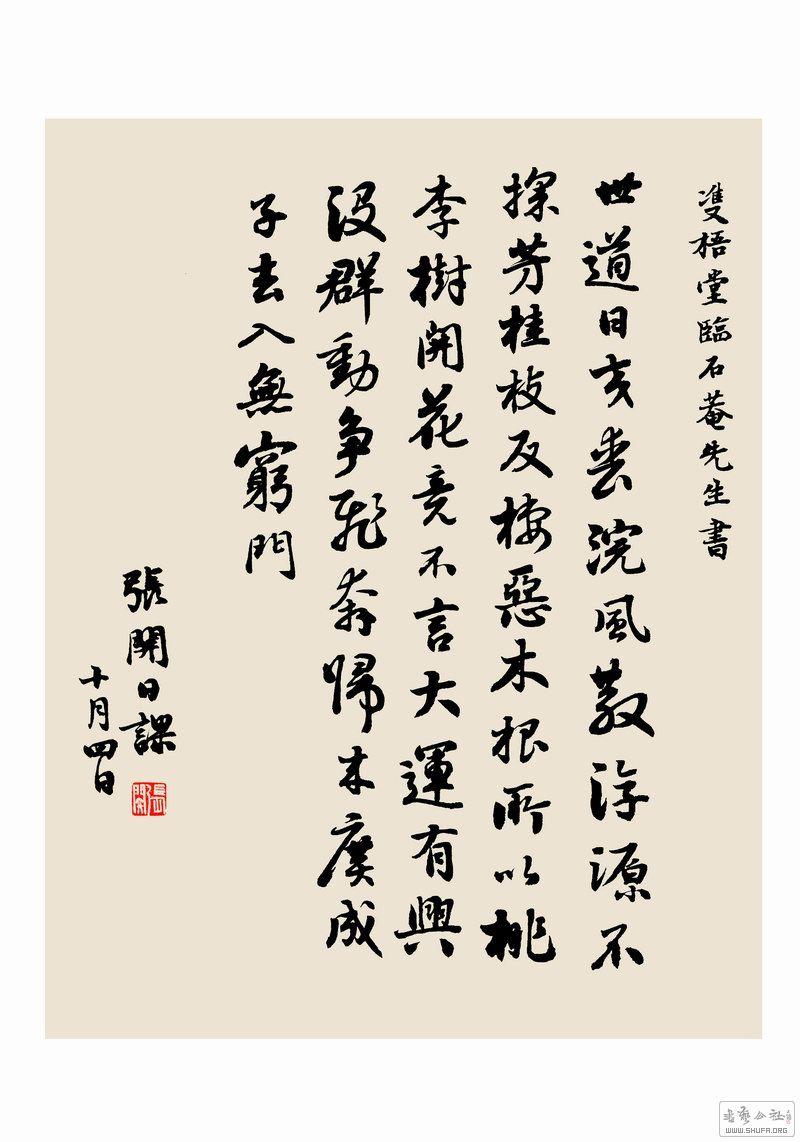 雙梧堂臨石菴先生書
世道日交喪澆風散淳源不
採芳桂枝反棲惡木根所以桃
李樹開花竟不言大運有興
没群動爭飛奔歸来廣成
子去入無窮門
張開日課
十月四日
張開
書藝公社
WWW.SHUFA.ORG